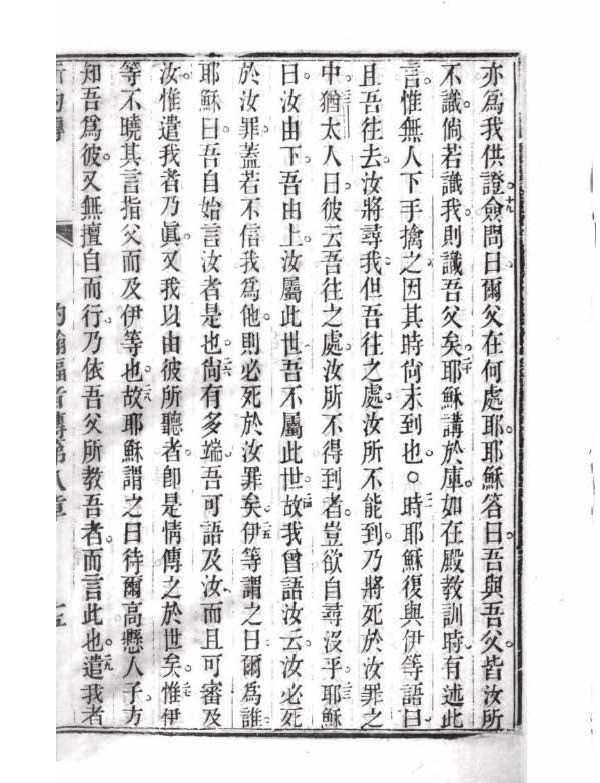 亦爲我供證。十九僉問曰爾父在何處耶。耶穌答曰。吾與吾父。皆汝所
不識。倘若識我。則識吾父矣。二十耶穌講於庫。如在殿教訓時。有述此
言。惟無人下手擒之。因其時尙未到也。○二一時耶穌復與伊等語曰、
且吾往去。汝將尋我。但吾往之處。汝所不能到。乃將死於汝罪之
中。二二猶太人曰。彼云吾往之處。汝所不得到者。豈欲自尋沒乎。二三耶穌
曰。汝由下。吾由上。汝屬此世。吾不屬此世。二四故我曾語汝云。汝必死
於汝罪。蓋若不信我爲他。則必死於汝罪矣。二五伊等謂之曰。爾爲誰
耶穌曰。吾自始言汝者是也。二六尙有多端。吾可語及汝。而且可審及
汝。惟遣我者乃眞。又我以由彼所聽者。卽是情傳之於世矣。二七惟伊
等不曉其言指父而及伊等也。二八故耶穌謂之曰。待爾高懸人子。方
知吾爲彼。又無擅自而行。乃依吾父所教吾者。而言此也。二九遣我者
約翰福音傳第八章